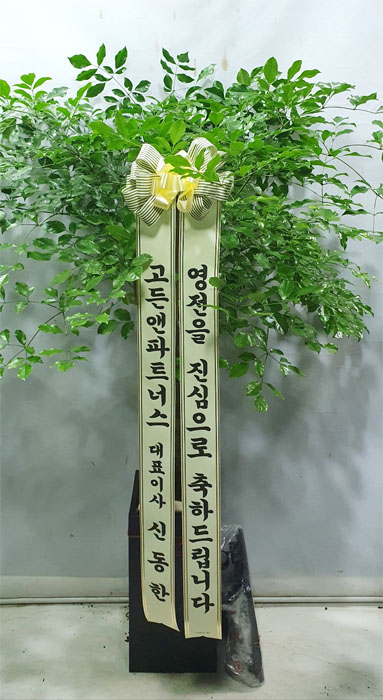 영전을 진심으로 축하드립니다
고든앤파트너스 대표이사 신동한